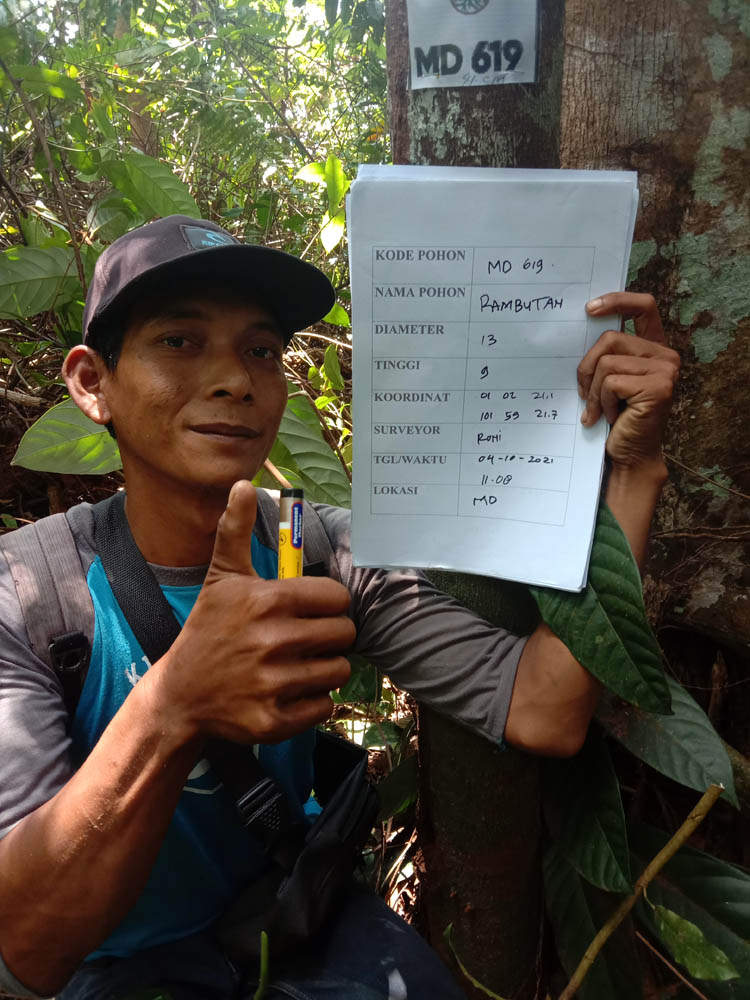 MD 619
KODE POHON MD 619.
NAMA POHON RAMBUTAN
DIAMETER 13
TINGGI 9
KOORDINAT 01 02 21.1
101 59 21.7
SURVEYOR ROMI
TGL/WAKTU 04-10-2021
11.08
LOKASI MD
Permanent
Marker